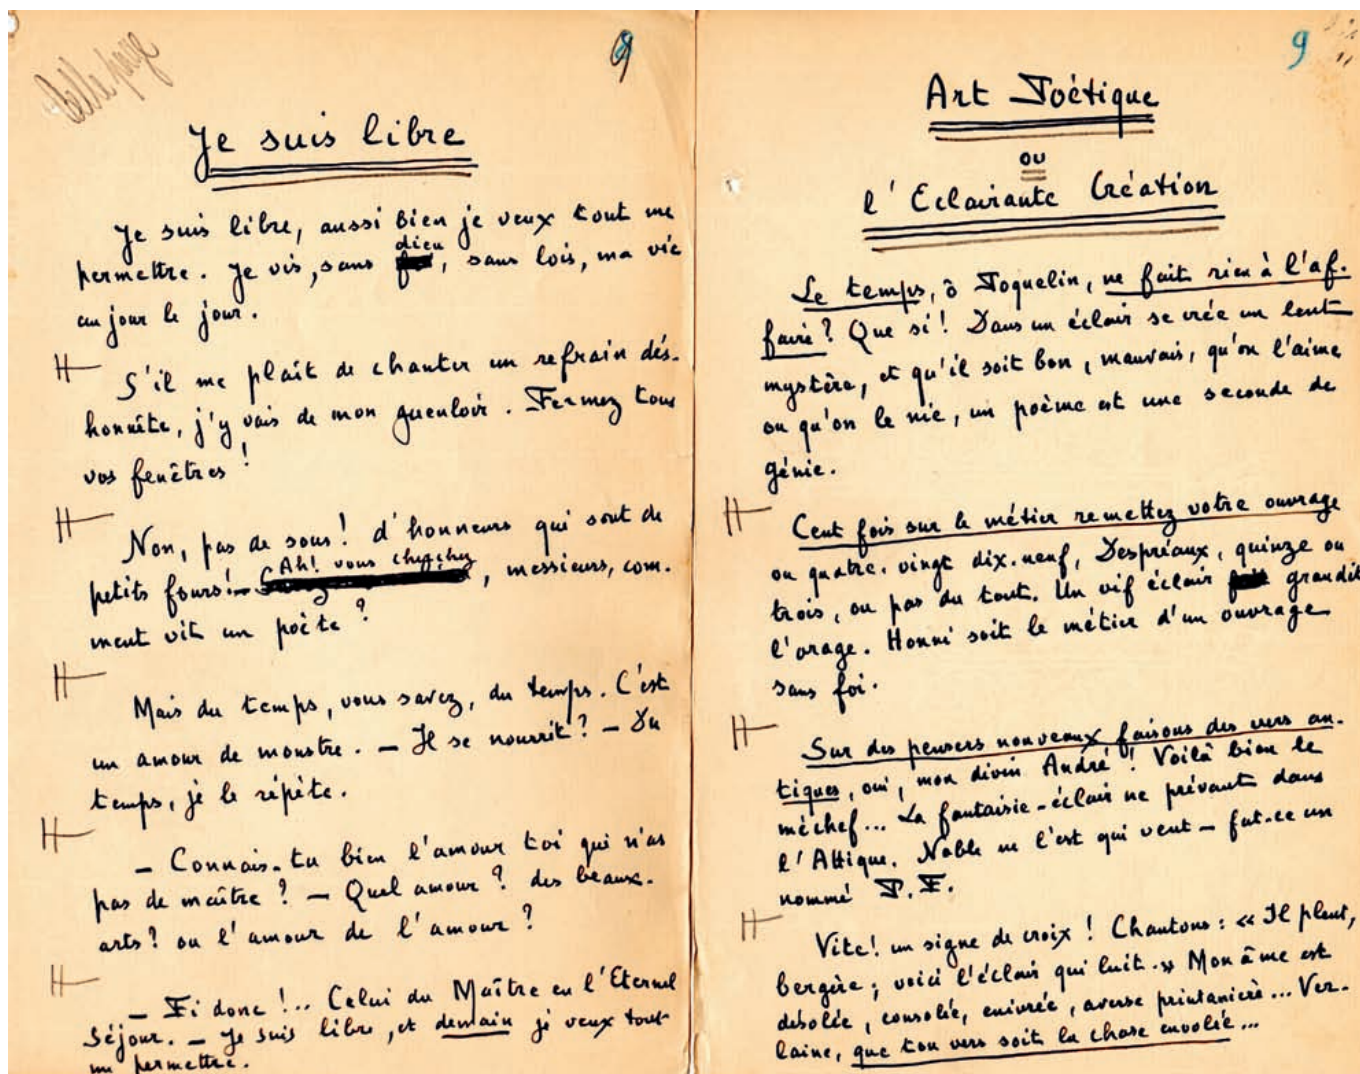 Belle page
9
Je suis libre
Je suis libre, aussi bien je veux tout me
permettre. Je vis, sans dieu, sans lois, ma vie
au jour le jour.
S'il me plaît de chanter un refrain dés-
honnête, j'y vais de mon gueuloir. Fermez tous
vos fenêtres !
Non, pas de sous ! d'honneurs qui sont de
petits fours ! — Ah ! vous cherchez, messieurs, com-
ment vit un poète ?
Mais du temps, vous savez, du temps. C'est
un amour de monstre. — Il se nourrit ? — Du
temps, je le répète.
— Connais-tu bien l'amour toi qui n'as
pas de maître ? — Quel amour ? des beaux-
arts ? ou l'amour de l'amour ?
— Fi donc !.. Celui du Maître en l'Eternel
Séjour. — Je suis libre, et demain je veux tout
me permettre.
9
Art Poétique
ou
l'Eclairante Création
Le temps, ô Poquelin, ne fait rien à l'af-
faire ? Que si ! Dans un éclair se crée un lent
mystère, et qu'il soit bon, mauvais, qu'on l'aime
ou qu'on le nie, un poème est une seconde de
génie.
Cent fois sur le métier remettez votre ouvrage
ou quatre-vingt dix-neuf, Despréaux, quinze ou
trois, ou pas du tout. Un vif éclair grandit
l'orage. Honni soit le métier d'un ouvrage
sans foi.
Sur des pensers nouveaux faisons des vers an-
tiques, oui, mon divin André ! Voilà bien le
méchef... La fantaisie-éclair ne prévaut dans
l'Attique. Noble ne l'est qui veut — fut-ce un
nommé P. F.
Vite ! un signe de croix ! Chantons : « Il pleut,
bergère ; voici l'éclair qui luit. » Mon âme est
désolée, consolée, enivrée, averse printanière... Ver-
laine, que ton vers soit la chose envolée...